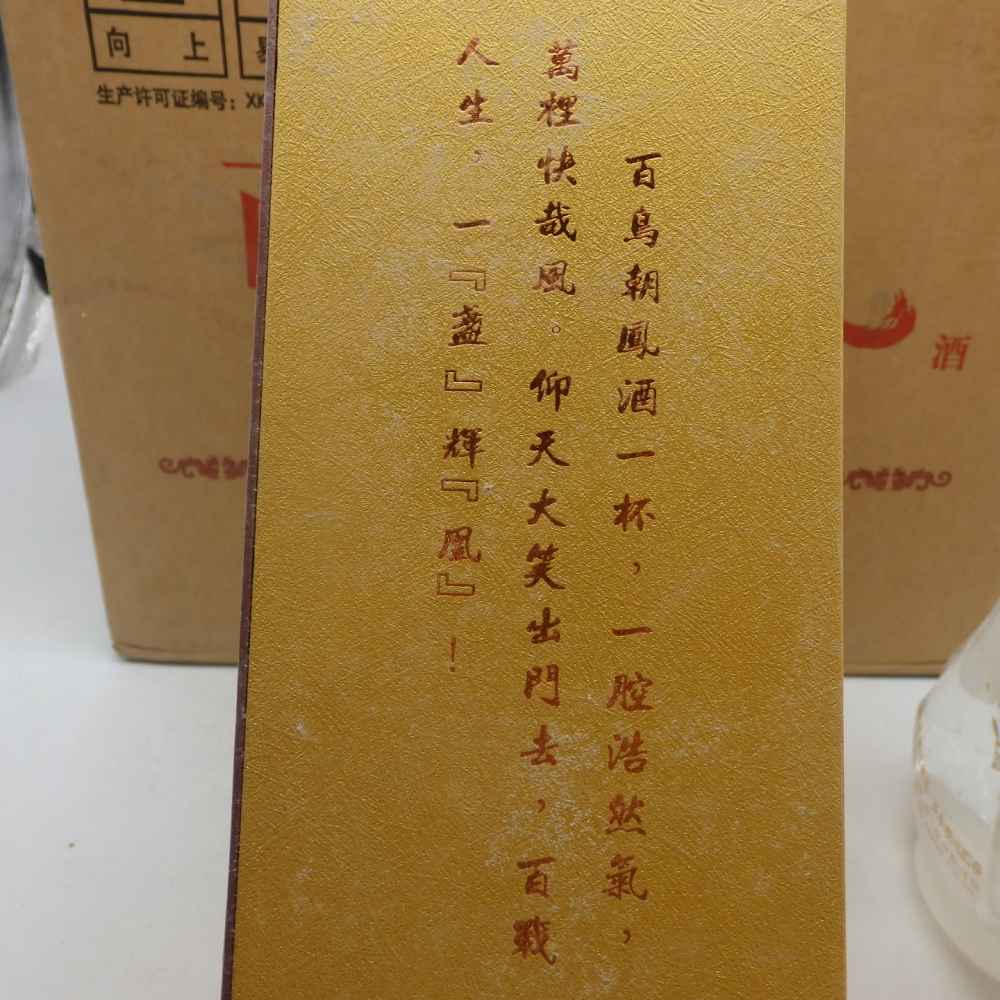 百鳥朝鳳酒一杯，一腔浩然氣，
萬裡快哉風。仰天大笑出門去，百戰
人生，一『盞』輝『凰』！
向 上
生产许可证编号：XK
酒